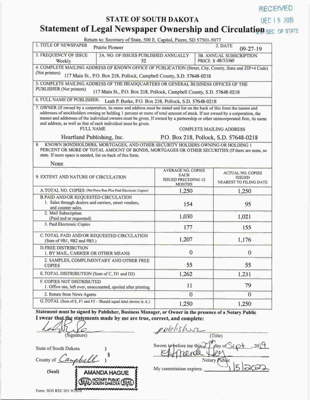 RECEIVED
DEC 19 2019
SEC OF STATE
STATE OF SOUTH DAKOTA
Statement of Legal Newspaper Ownership and Circulation
Return to: Secretary of State, 500 E. Capitol, Pierre, SD 57501-5077
1. TITLE OF NEWSPAPER
Prairie Pioneer
2. DATE
09-27-19
3. FREQUENCY OF ISSUE
Weekly
3A. NUMBER OF ISSUES PUBLISHED ANNUALLY
52
3B. ANNUAL SUBSCRIPTION
PRICE $
4. COMPLETE MAILING ADDRESS OF KNOWN OFFICE OF PUBLICATION (Street, City, County, State and ZIP+4 Code).
(Not printers)
117 Main St., P.O. Box 218, Pollock, Campbell County, S.D. 57648-0218
5. COMPLETE MAILING ADDRESS OF THE HEADQUARTERS OR GENERAL BUSINESS OFFICES OF THE
PUBLISHER (Not printer)
117 Main St., P.O. Box 218, Pollock, Campbell County, S.D. 57648-0218
6. FULL NAME OF PUBLISHER:
Leah P. Burke, P.O. Box 218, Pollock, S.D. 57648-0218
7. OWNER (If owned by a corporation, its name and address must be stated and list on the back of this form the names and
addresses of stockholders owning or holding 1 percent or more of total amount of stock. If not owned by a corporation, the
names and addresses of the individual owners must be given. If owned by a partnership or other unincorporated firm, its name
and address, as well as that of each individual must be given.
FULL NAME
COMPLETE MAILING ADDRESS
Heartland Publishing, Inc.
P.O. Box 218, Pollock, S.D. 57648-0218
8. KNOWN BONDHOLDERS, MORTGAGES, AND OTHER SECURITY HOLDERS OWNING OR HOLDING 1
PERCENT OR MORE OF TOTAL AMOUNT OF BONDS, MORTGAGES OR OTHER SECURITIES (If there are none, so
state. If more space is needed, list on back of this form.
None
9. EXTENT AND NATURE OF CIRCULATION
AVERAGE NO. COPIES
EACH
ISSUED PRECEDING 12
MONTHS
ACTUAL NO. COPIES
ISSUED
NEAREST TO FILING DATE
A. TOTAL NO. COPIES (Net Press Run Plus Paid Electronic Copies)
1,250
1,250
B. PAID AND/OR REQUESTED CIRCULATION
1. Sales through dealers and carriers, street vendors,
and counter sales.
154
95
2. Mail Subscription
(Paid and or requested)
1,030
1,021
3. Paid Electronic Copies
177
155
C. TOTAL PAID AND/OR REQUESTED CIRCULATION
(Sum of 9B1, 9B2 and 9B3.)
1,207
1,176
D. FREE DISTRIBUTION
1. BY MAIL, CARRIER OR OTHER MEANS
0
0
2. SAMPLES, COMPLIMENTARY AND OTHER FREE
COPIES
55
55
E. TOTAL DISTRIBUTION (Sum of C, D1 and D2)
1,262
1,231
F. COPIES NOT DISTRIBUTED
1. Office use, left over, unaccounted, spoiled after printing
11
79
2. Return from News Agents
0
0
G. TOTAL (Sum of E, F1 and F2 - Should equal total shown in A.)
1,250
1,250
Statement must be signed by Publisher, Business Manager, or Owner in the presence of a Notary Public
I swear that the statements made by me are true, correct, and complete:
publisher
(Signature)
(Title)
State of South Dakota )
§
County of Campbell )
Sworn to before me this 27 day of Sept, 2019
Amanda
Notary Public
(Seal)
AMANDA HAGUE
NOTARY PUBLIC
SOUTH DAKOTA
SEAL
My commission expires:
Form: SOS REC 051